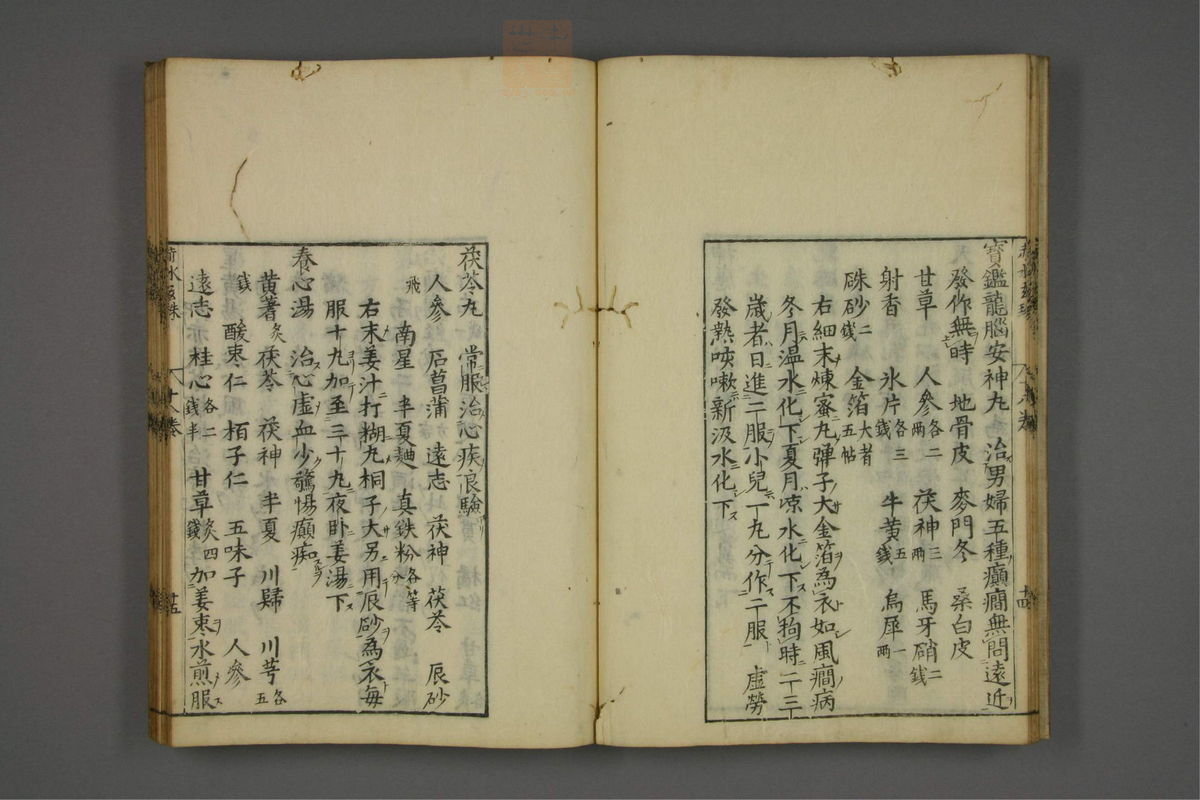 寶鑑龍腦安神丸 治男婦五種癲癇無問遠近
發作無時 地骨皮 麥門冬 桑白皮
甘草 人參各二兩 茯神三兩 馬牙硝二錢
射香 氷片各三錢 牛黄五錢 烏犀一兩
硃砂二錢 金箔大者五帖
右細末煉蜜丸彈子大金箔為衣如風癇病
冬月温水化下夏月凉水化下不拘時二十三
歳者日進二服小兒一丸分作二服 虚勞
發熱咳嗽新汲水化下
茯苓丸 常服治心疾良驗
人參 石菖蒲 遠志 茯神 茯苓 辰砂
飛 南星 半夏麯 真鉄粉各等分
右末姜汁打糊丸桐子大另用辰砂為衣毎
服十丸加至三十丸夜卧姜湯下
養心湯 治心虚血少驚惕癲痴
黄蓍炙 茯苓 茯神 半夏 川歸 川芎各五
錢 酸棗仁 栢子仁 五味子 人參
遠志 桂心各二錢半 甘草炙四錢 加姜棗水煎服